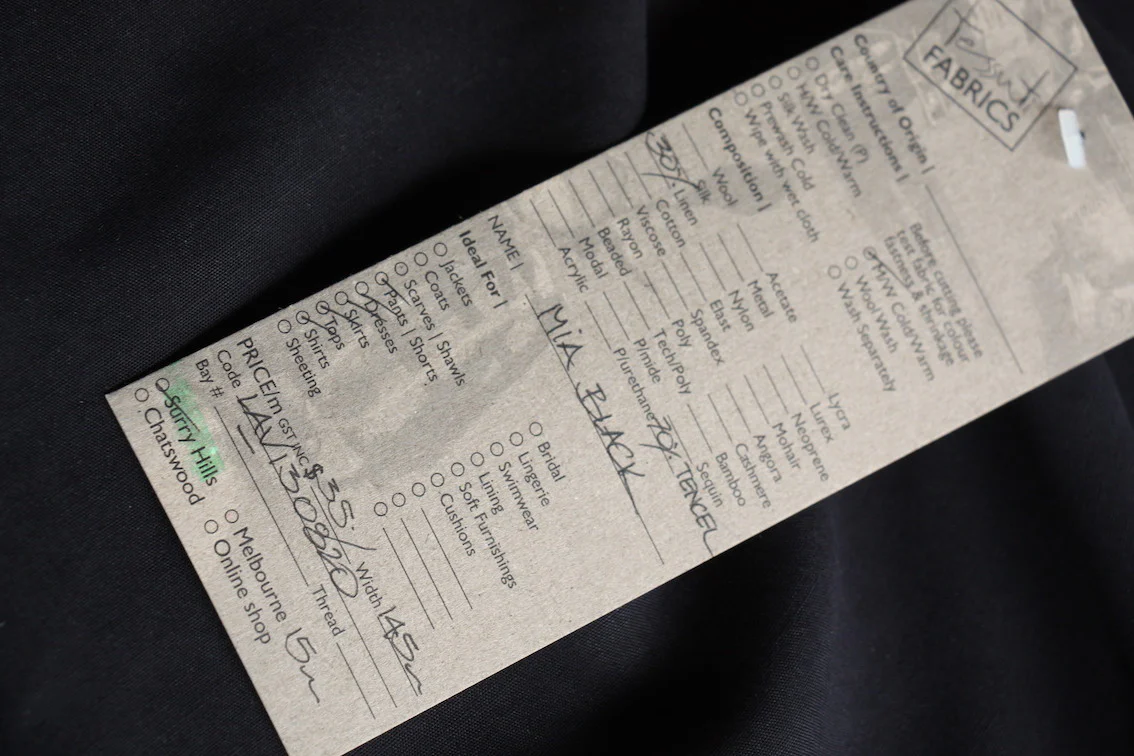 Tessuti
FABRICS
Country of Origin |
Care Instructions |
Dry Clean (P)
H/W Cold/Warm
Silk Wash
Prewash Cold
Wipe with wet cloth
Before cutting please
test fabric for colour
fastness & shrinkage
M/W Cold/Warm
Wool Wash
Wash Separately
Composition |
Wool
Silk
30% Linen
Cotton
Viscose
Rayon
Beaded
Modal
Acrylic
Acetate
Metal
Nylon
Elast
Spandex
Poly
Tech/Poly
P/mide
P/urethane
Lycra
Lurex
Neoprene
Mohair
Angora
Cashmere
Bamboo
Sequin
70% TENCEL
NAME | MiA BLACK
Ideal For |
Jackets
Coats
Scarves | Shawls
Pants | Shorts
Dresses
Skirts
Tops
Shirts
Sheeting
Bridal
Lingerie
Swimwear
Lining
Soft Furnishings
Cushions
PRICE/m GST INC $35/ Width 145m
Code LAV130820
Bay # Thread
Surry Hills
Chatswood
Melbourne
Online shop
15m